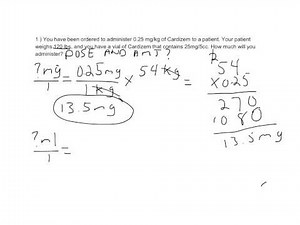 1.) You have been ordered to administer 0.25 mg/kg of Cardizem to a patient. Your patient
weighs 120 lbs, and you have a vial of Cardizem that contains 25mg/5cc. How much will you
administer? DOSE AND AMT?
?mg/1 = 0.25mg/1kg × 54kg/1 =
13.5mg
54
×0.25
270
1080
13.5mg
?ml/1 =